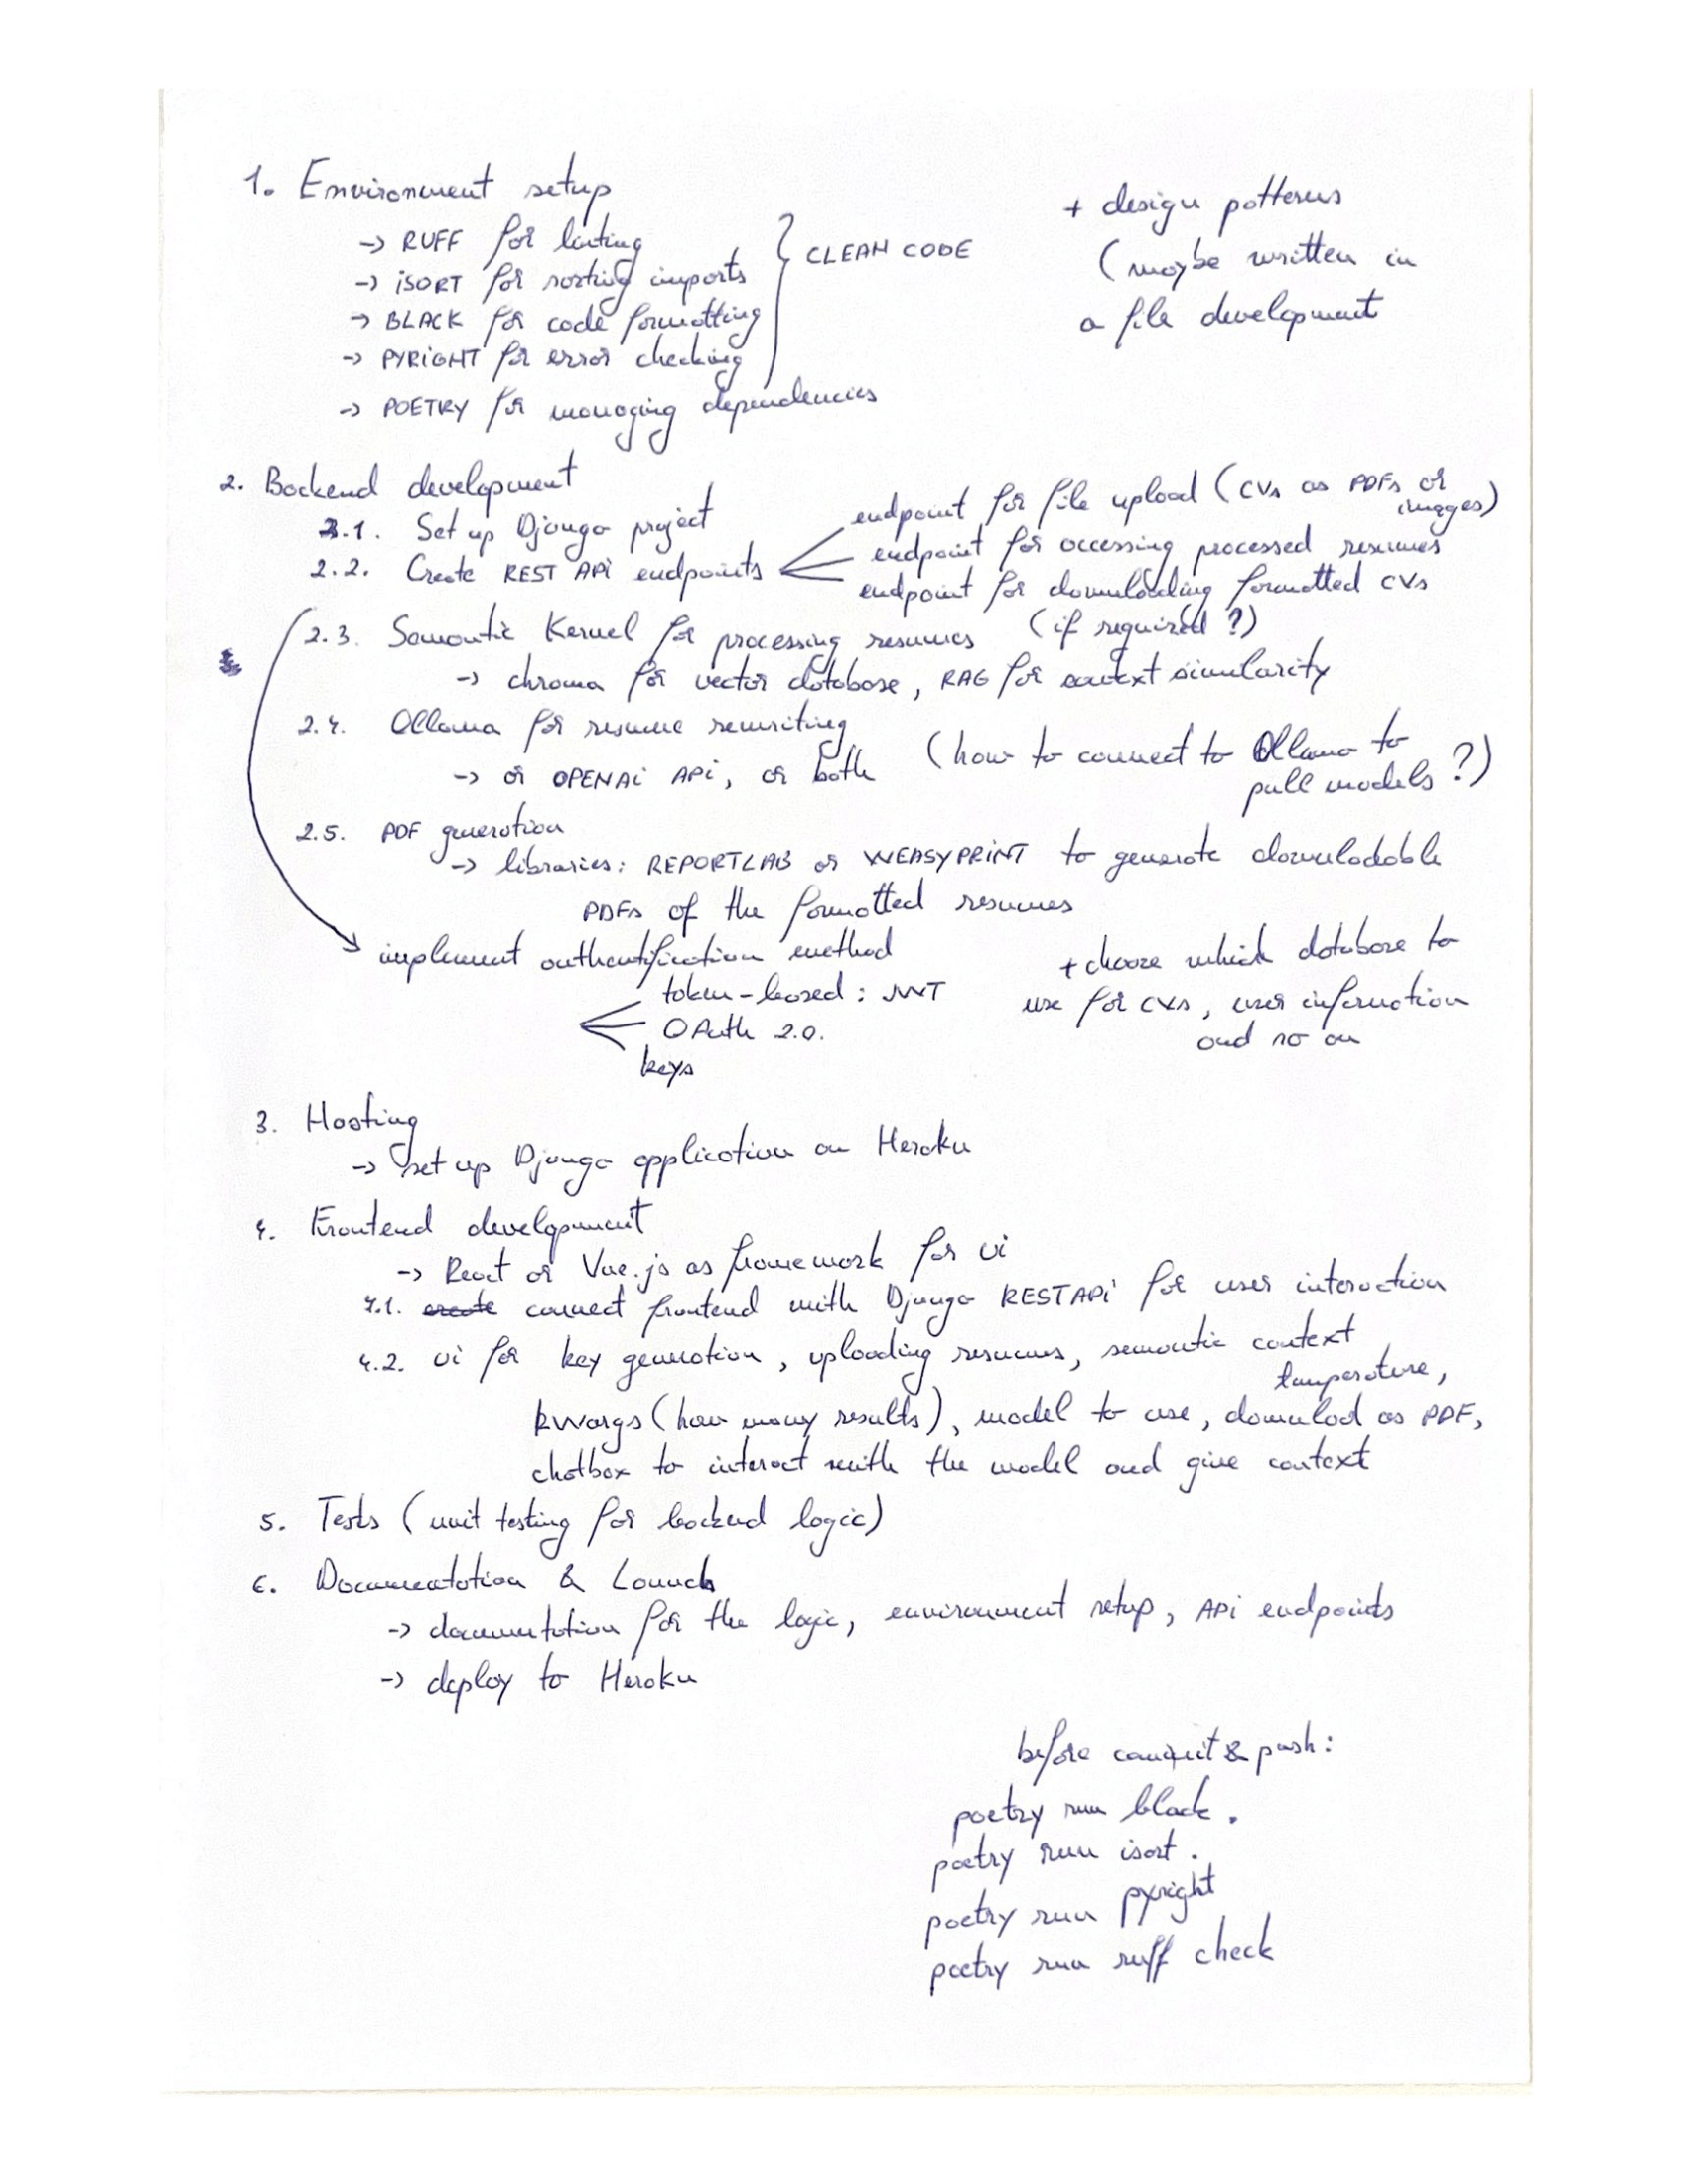 1. Environment setup
-> RUFF for linting
-> iSORT for sorting imports
-> BLACK for code formatting
-> PYRIGHT for error checking
-> POETRY for managing dependencies
CLEAN CODE
+ design patterns
(maybe written in
a file development
2. Backend development
2.1. Set up Django project
2.2. Create REST APi endpoints
endpoint for file upload (CVs as PDFs or
images)
endpoint for accessing processed resumes
endpoint for downloading formatted CVs
2.3. Semantic Kernel for processing resumes (if required?)
-> chroma for vector database, RAG for context similarity
2.4. Ollama for resume rewriting
-> or OPENAi APi, or both
(how to connect to Ollama to
pull models?)
2.5. PDF generation
-> libraries: REPORTLAB or WEASYPRINT to generate downlodable
PDFs of the formatted resumes
implement authentification method
token-based: JWT
OAuth 2.0.
keys
+ choose which database to
use for CVs, user information
and so on
3. Hosting
-> set up Django application on Heroku
4. Frontend development
-> React or Vue.js as framework for ui
4.1. create connect frontend with Django REST APi for user interaction
4.2. ui for key generation, uploading resumes, semantic context
temperature,
kwargs (how many results), model to use, downlod as PDF,
chatbox to interact with the model and give context
5. Tests (unit testing for backend logic)
6. Documentation & Launch
-> documentation for the logic, environment setup, APi endpoints
-> deploy to Heroku
before commit & push:
poetry run black .
poetry run isort .
poetry run pyright
poetry run ruff check